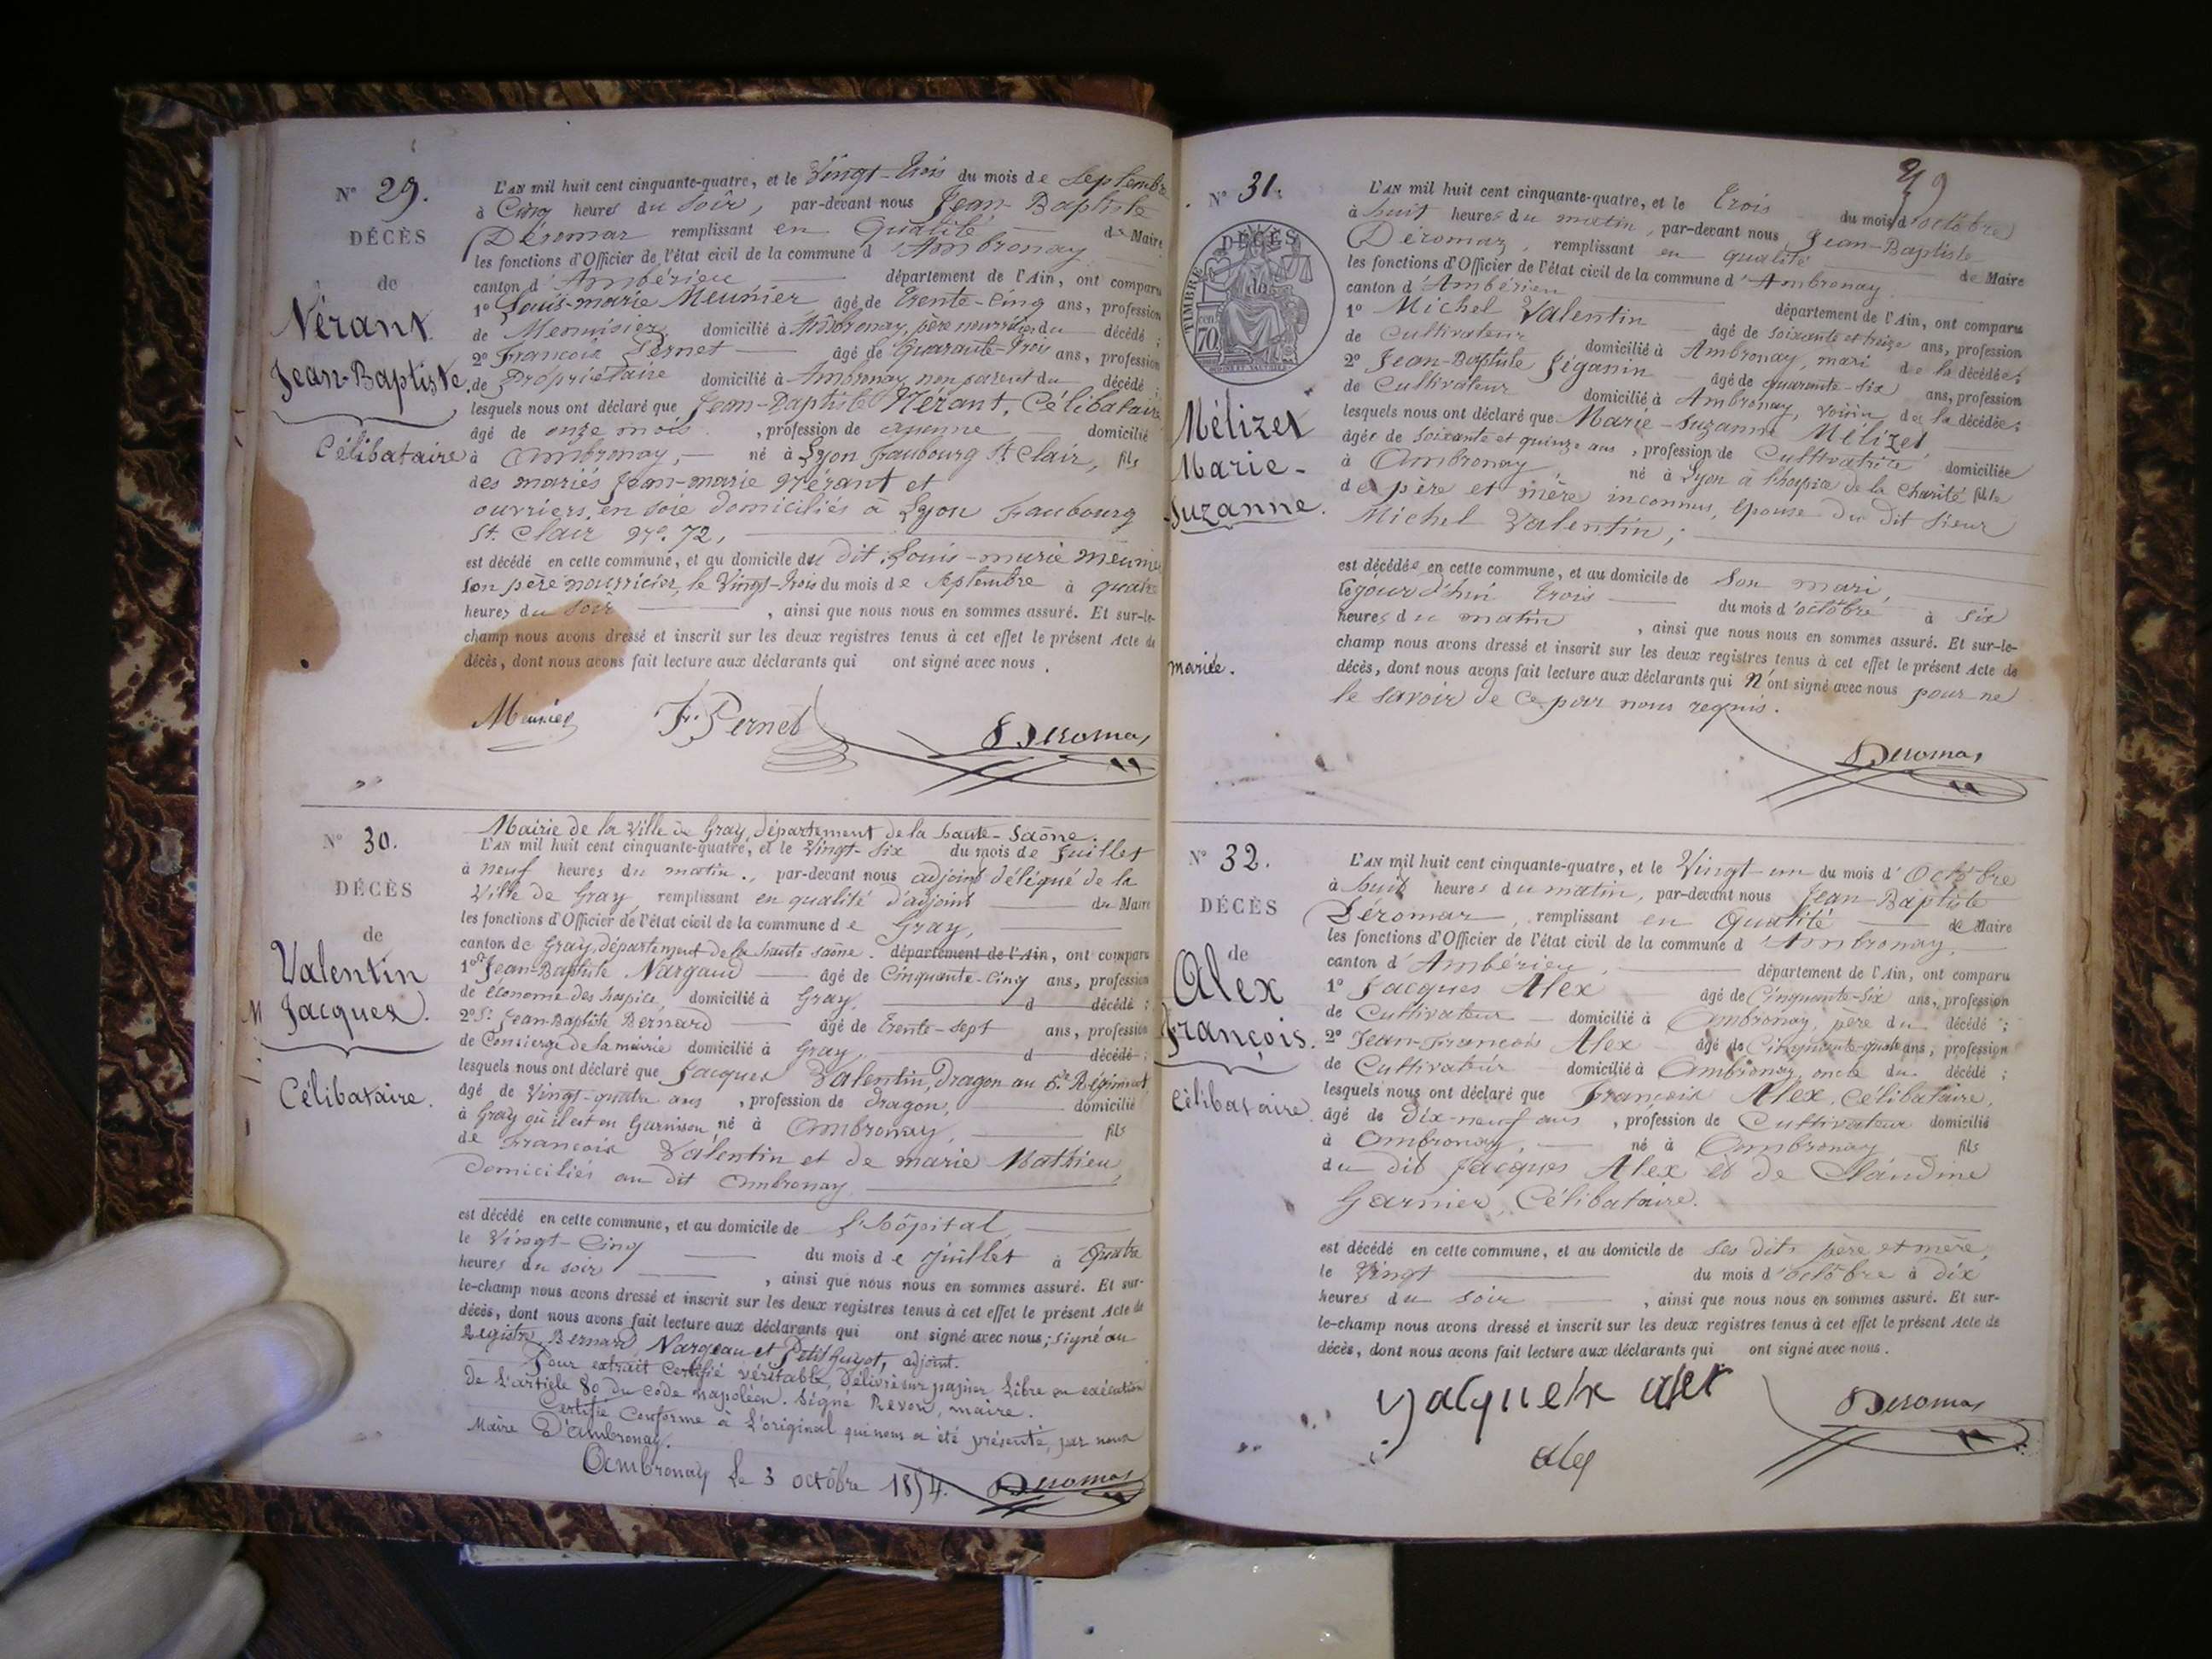 N° 29.
DÉCÈS
de
Nérant
Jean-Baptiste.
Célibataire
L'AN mil huit cent cinquante-quatre, et le Vingt-trois du mois de Septembre
à Cinq heures du Soir, par-devant nous Jean-Baptiste
Déromas remplissant en Qualité de Maire
les fonctions d'Officier de l'état civil de la commune d'Ambronay
canton d'Ambérieu département de l'Ain, ont comparu
1° Louis-marie Meunier âgé de trente-cinq ans, profession
de Menuisier domicilié à Ambronay, père nourricier du décédé ;
2° François Pernet âgé de Quarante-trois ans, profession
de Propriétaire domicilié à Ambronay, non parent du décédé ;
lesquels nous ont déclaré que Jean-Baptiste Nérant, Célibataire
âgé de onze mois, profession de aucune domicilié
à Ambronay, né à Lyon Faubourg St Clair, fils
des mariés Jean-marie Nérant et
ouvriers en soie domiciliés à Lyon Faubourg
St. Clair N°. 72,
est décédé en cette commune, et au domicile du dit Louis-marie meunier
son père nourricier, le Vingt-trois du mois de Septembre à quatre
heures du Soir, ainsi que nous nous en sommes assuré. Et sur-le-
champ nous avons dressé et inscrit sur les deux registres tenus à cet effet le présent Acte de
décès, dont nous avons fait lecture aux déclarants qui ont signé avec nous.
Meunier F. Pernet Deromas
N° 30.
DÉCÈS
de
Valentin
Jacques.
Célibataire.
Mairie de la Ville de Gray, département de la haute-Saône.
L'AN mil huit cent cinquante-quatre, et le Vingt-six du mois de Juillet
à neuf heures du matin., par-devant nous adjoint délégué de la
Ville de Gray, remplissant en qualité d'adjoint du Maire
les fonctions d'Officier de l'état civil de la commune de Gray,
canton de Gray, département de la haute saône. département de l'Ain, ont comparu
1° Sr Jean-Baptiste Nargaud âgé de Cinquante-cinq ans, profession
de économe des hospice, domicilié à Gray, d décédé ;
2° Sr Jean-Baptiste Bernard âgé de trente-sept ans, profession
de Concierge de la mairie domicilié à Gray, d décédé ;
lesquels nous ont déclaré que Jacques Valentin, Dragon au 6e Régiment
âgé de Vingt-quatre ans, profession de dragon, domicilié
à Gray où il est en Garnison né à Ambronay, fils
de François Valentin et de marie Mathieu,
domiciliés au dit Ambronay
est décédé en cette commune, et au domicile de L'hôpital
le Vingt-Cinq du mois de Juillet à Quatre
heures du soir, ainsi que nous nous en sommes assuré. Et sur-
le-champ nous avons dressé et inscrit sur les deux registres tenus à cet effet le présent Acte de
décès, dont nous avons fait lecture aux déclarants qui ont signé avec nous ; signé au
Registre Bernard, Nargeau et Petit Guyot, adjoint.
Pour extrait Certifié véritable, Délivré sur papier Libre en exécution
de L'article 80 du Code napoléon. Signé Revon, maire.
Certifié Conforme à L'original qui nous a été présenté, par nous
Maire D'ambronay.
Ambronay Le 3 octobre 1854. Deromas
29
N° 31.
DÉCÈS
de
TIMBRE
70
Mélizet
Marie-
Suzanne.
mariée.
L'AN mil huit cent cinquante-quatre, et le trois du mois d'octobre
à huit heures du matin, par-devant nous Jean-Baptiste
Déromas, remplissant en qualité de Maire
les fonctions d'Officier de l'état civil de la commune d'Ambronay
canton d'Ambérieu département de l'Ain, ont comparu
1° Michel Valentin âgé de soixante et treize ans, profession
de Cultivateur domicilié à Ambronay, mari de la décédée ;
2° Jean-Baptiste Jéganin âgé de quarante-six ans, profession
de Cultivateur domicilié à Ambronay, voisin de la décédée ;
lesquels nous ont déclaré que Marie-Suzanne Mélizet,
âgée de soixante et quinze ans, profession de Cultivatrice domiciliée
à Ambronay, né à Lyon à l'hospice de la Charité fille
de père et mère inconnus, épouse du dit sieur
Michel Valentin ;
est décédée en cette commune, et au domicile de son mari,
cejourd'hui trois du mois d'octobre à six
heures du matin, ainsi que nous nous en sommes assuré. Et sur-le-
champ nous avons dressé et inscrit sur les deux registres tenus à cet effet le présent Acte de
décès, dont nous avons fait lecture aux déclarants qui n'ont signé avec nous pour ne
le savoir de ce par nous requis.
Deromas
N° 32.
DÉCÈS
de
Alex
François.
Célibataire.
L'AN mil huit cent cinquante-quatre, et le Vingt-un du mois d'Octobre
à huit heures du matin, par-devant nous Jean-Baptiste
Déromas, remplissant en Qualité de Maire
les fonctions d'Officier de l'état civil de la commune d'Ambronay
canton d'Ambérieu, département de l'Ain, ont comparu
1° Jacques Alex âgé de Cinquante-six ans, profession
de Cultivateur domicilié à Ambronay, père du décédé ;
2° Jean-François Alex âgé de Cinquante-quatre ans, profession
de Cultivateur domicilié à Ambronay, oncle du décédé ;
lesquels nous ont déclaré que François Alex, Célibataire,
âgé de Dix-neuf ans, profession de Cultivateur domicilié
à Ambronay, né à Ambronay fils
du dit Jacques Alex et de Claudine
Garnier, Célibataire.
est décédé en cette commune, et au domicile de ses dits père et mère,
le Vingt du mois d'octobre à dix
heures du soir, ainsi que nous nous en sommes assuré. Et sur-
le-champ nous avons dressé et inscrit sur les deux registres tenus à cet effet le présent Acte de
décès, dont nous avons fait lecture aux déclarants qui ont signé avec nous.
Deromas